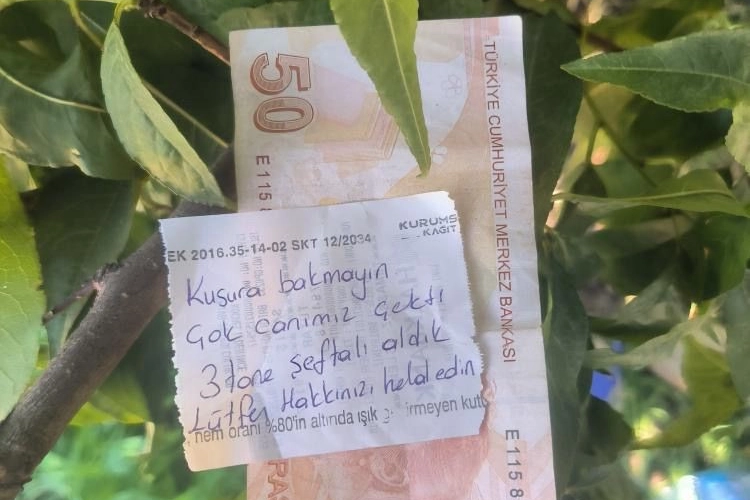 50
TÜRKİYE CUMHURİYET MERKEZ BANKASI
E 115 8
EK 2016.35-14-02 SKT 12/2034
KURUMS
KAĞIT
Kusura bakmayın
Çok canımız çekti
3 tane şeftali aldık
Lütfen Hakkınızı helal edin
nem oranı %80'in altında ışık g irmeyen kutu
E 115 8
RA